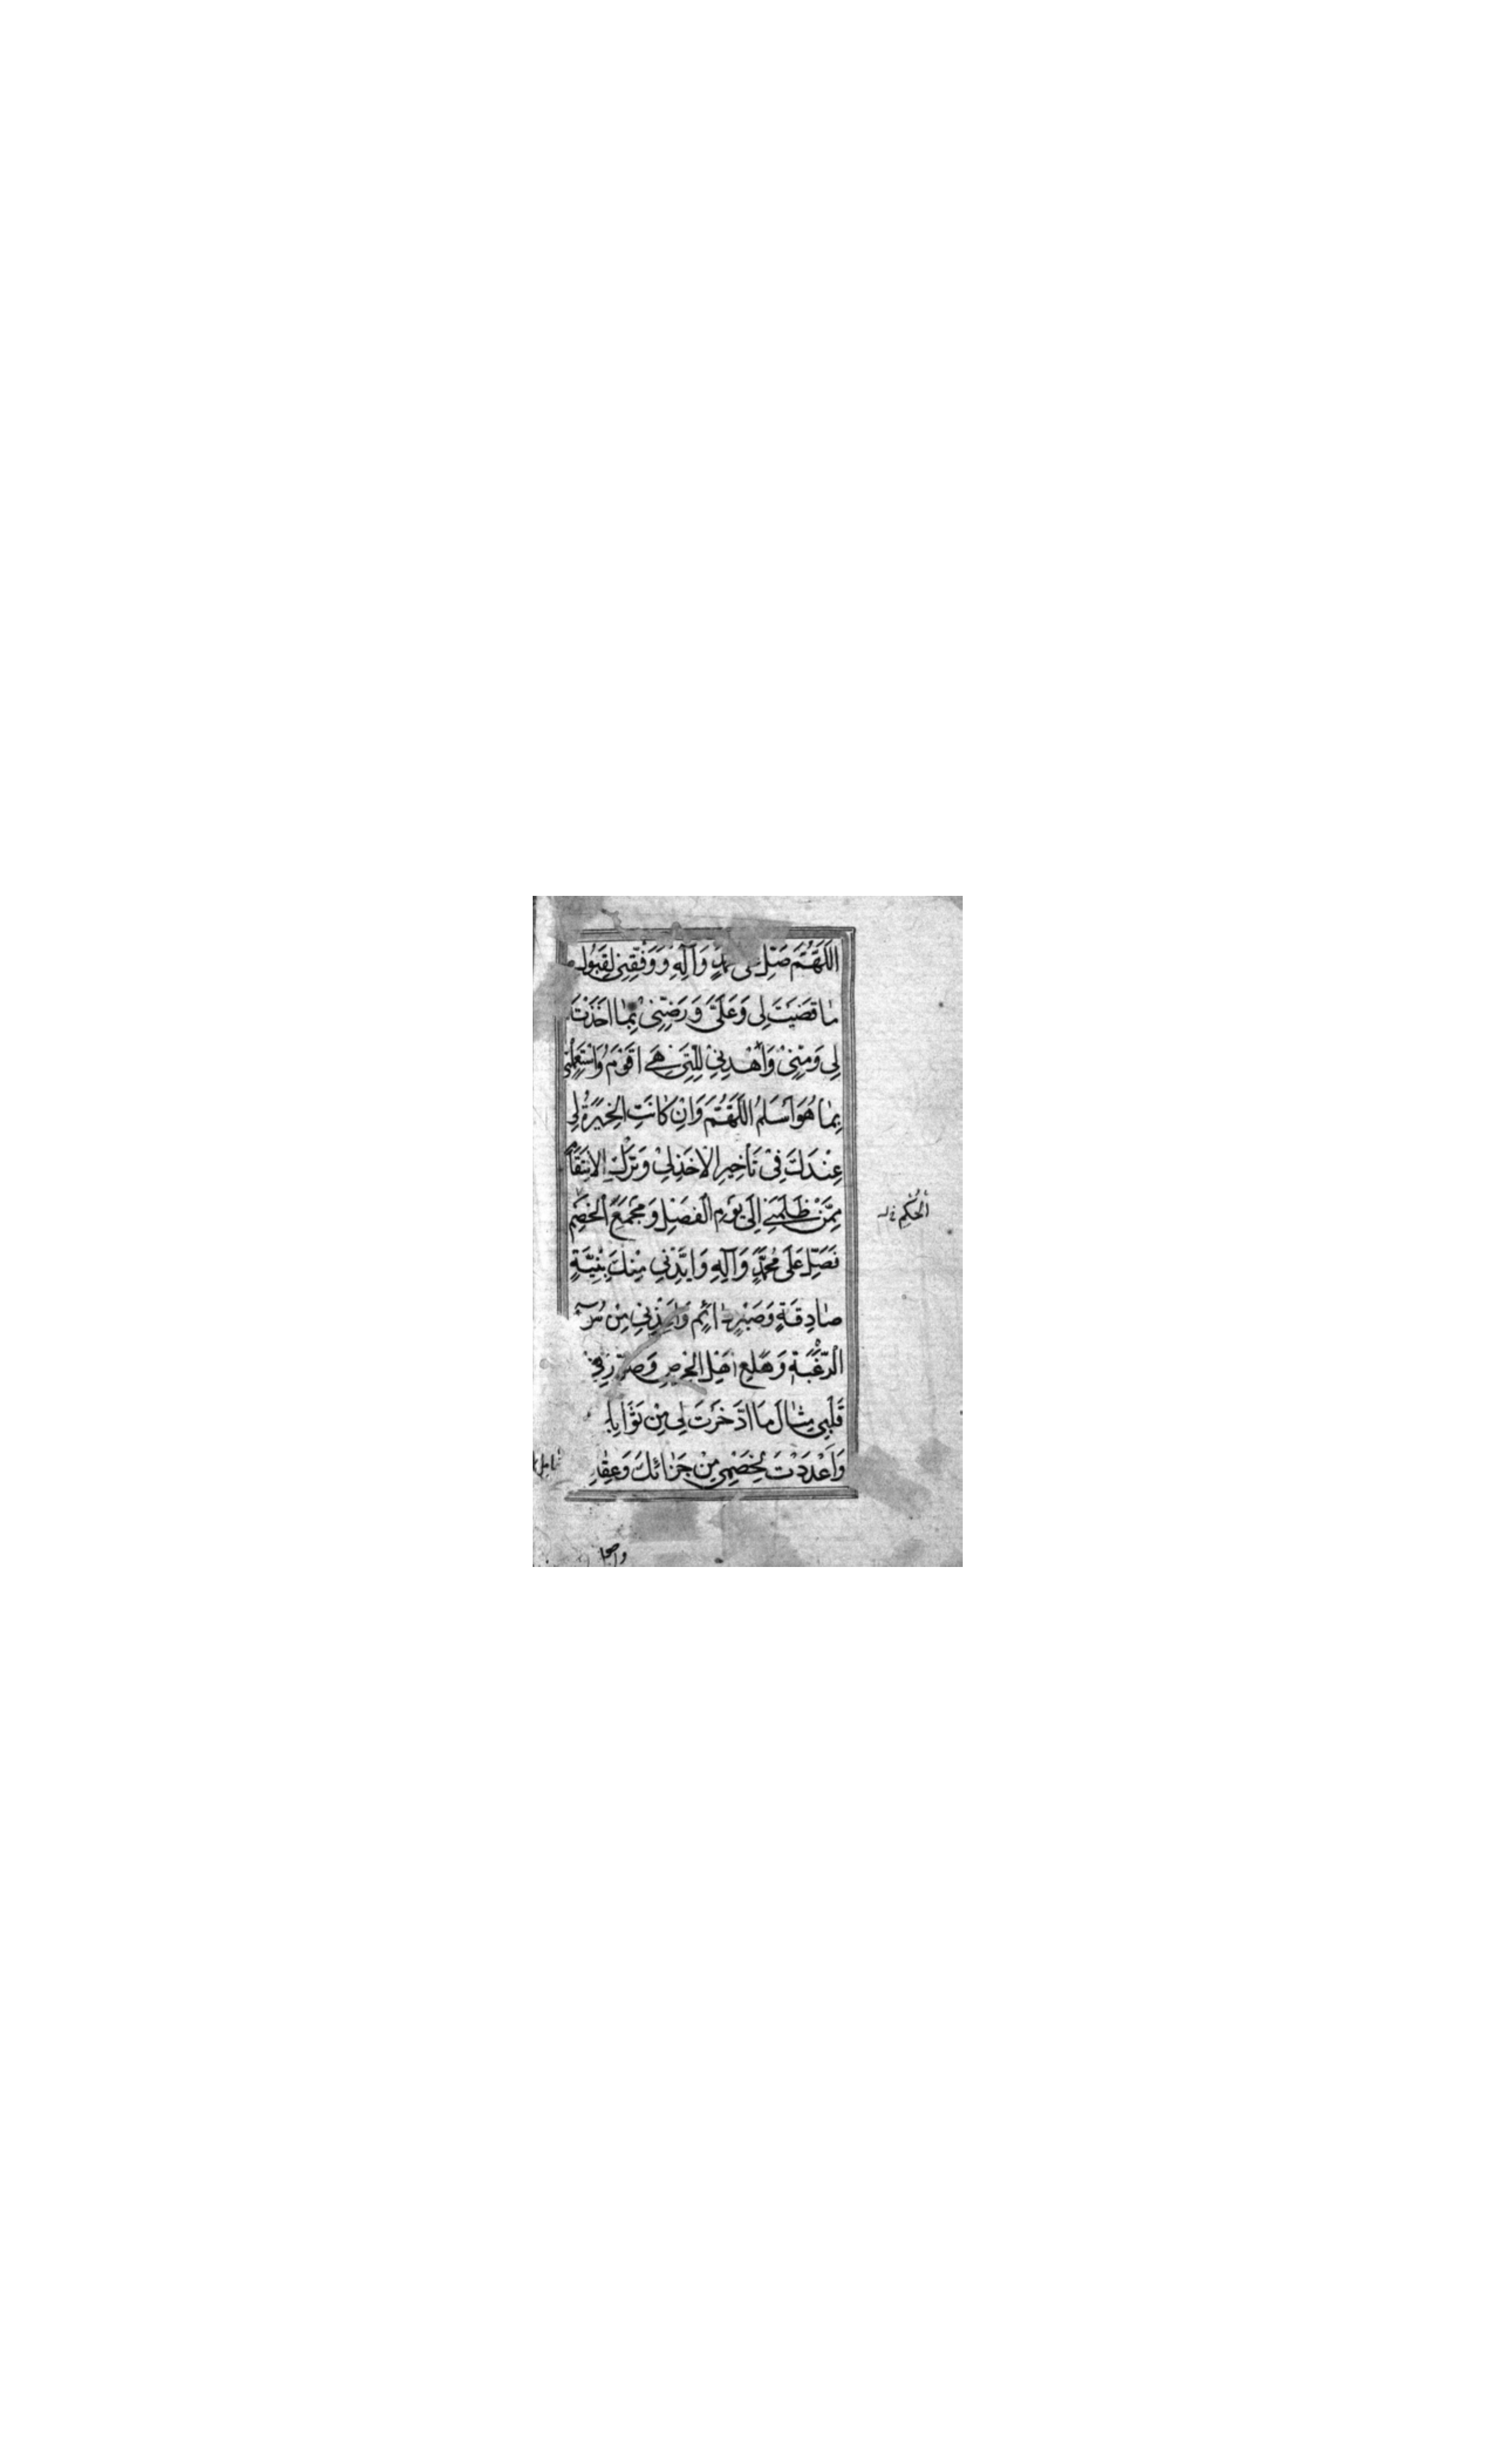 اَللّٰهُمَّ صَلِّ مُحَمَّدٍ وَآلِهِ وَوَفِّقْنِي لِقَبُولِ
مَا قَضَيْتَ لِي وَعَلَيَّ وَرَضِّنِي بِمَا اَخَذْتَ
لِي وَمِنِّي وَاهْدِنِي لِلَّتِي هِيَ اَقْوَمُ وَاسْتَعْمِلْنِي
بِمَا هُوَ اَسْلَمُ اللّٰهُمَّ وَاِنْ كَانَتِ الْخِيَرَةُ لِي
عِنْدَكَ فِي تَأْخِيرِ الْاَخْذِ لِي وَتَرْكِ الْاِنْتِقَامِ
مِمَّنْ ظَلَمَنِي اِلَى يَوْمِ الْفَصْلِ وَمَجْمَعِ الْخَصْمِ
فَصَلِّ عَلَى مُحَمَّدٍ وَآلِهِ وَاَيِّدْنِي مِنْكَ بِنِيَّةٍ
صَادِقَةٍ وَصَبْرٍ دَائِمٍ وَاَعِذْنِي مِنْ سُوءِ
الرَّغْبَةِ وَهَلَعِ اَهْلِ الْحِرْصِ وَصَوِّرْ فِي
قَلْبِي مِثَالَ مَا ادَّخَرْتَ لِي مِنْ ثَوَابِكَ
وَاَعْدَدْتَ لِخَصْمِي مِنْ جَزَائِكَ وَعِقَا
الْحُكْمِ